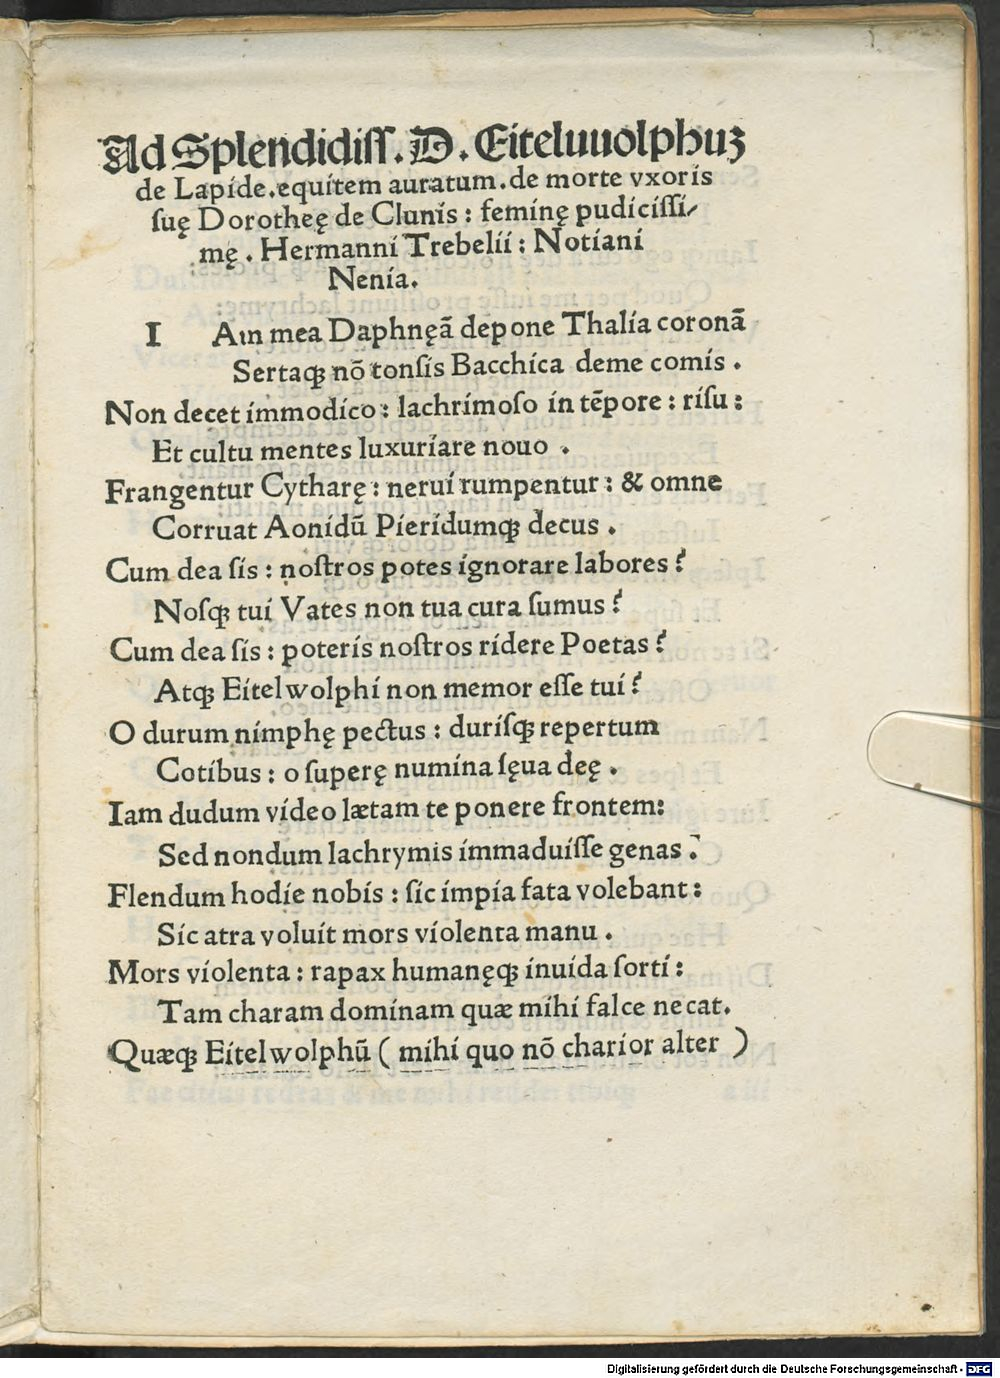 Ad Splendidiss. D. Eiteluuolphuȝ
de Lapide. equitem auratum. de morte vxoris
suę Dorotheę de Clunis : feminę pudicissi-
mę. Hermanni Trebelii : Notiani
Nenia.
I Am mea Daphnęā depone Thalia coronā
Sertaqꝫ nō tonsis Bacchica deme comis.
Non decet immodico : lachrimoso in tēpore : risu :
Et cultu mentes luxuriare nouo.
Frangentur Cytharę : nerui rumpentur : & omne
Corruat Aonidū Pieridumqꝫ decus.
Cum dea sis : nostros potes ignorare labores?
Nosqꝫ tui Vates non tua cura sumus?
Cum dea sis : poteris nostros ridere Poetas?
Atqꝫ Eitelwolphi non memor esse tui?
O durum nimphę pectus : durisqꝫ repertum
Cotibus : o superę numina sęua deę.
Iam dudum video lætam te ponere frontem:
Sed nondum lachrymis immaduisse genas.
Flendum hodie nobis : sic impia fata volebant :
Sic atra voluit mors violenta manu.
Mors violenta : rapax humanęqꝫ inuida sorti :
Tam charam dominam quæ mihi falce necat.
Quæqꝫ Eitelwolphū ( mihi quo nō charior alter )
Digitalisierung gefördert durch die Deutsche Forschungsgemeinschaft - DFG